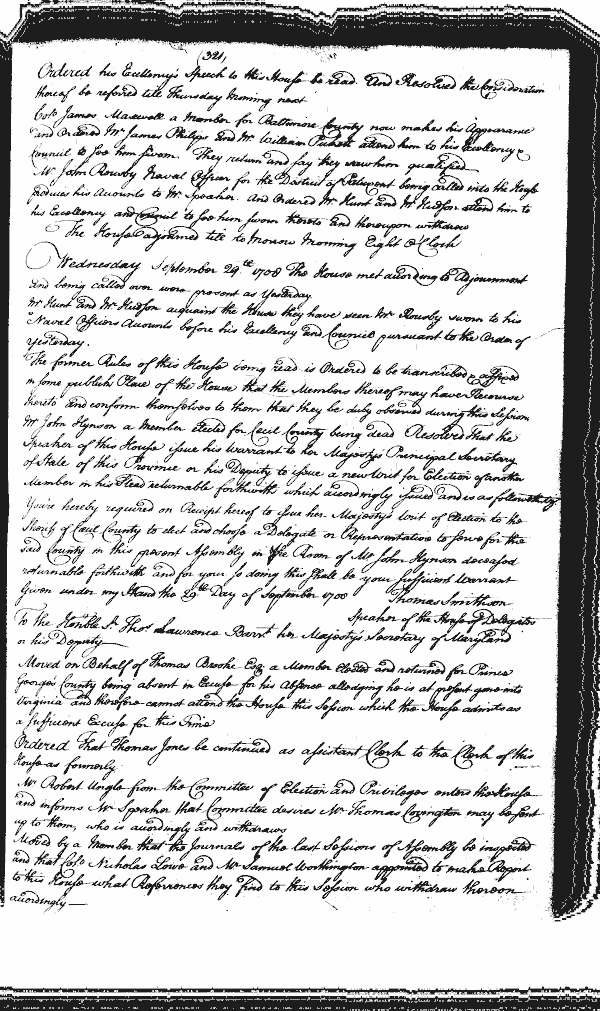 (321,
Ordered his Excellency's Speech to this House be read. And Resolved the Consideration
thereof be refered till Thursday morning next
Colo. James Maxwell a member for Baltimore County now makes his Appearance
and Ordered Mr James Philips and Mr William Pickett attend him to his Excellency &
Council to see him sworn. They return and say they saw him qualifyed
Mr John Rousby Naval Officer for the District of Patuxent being called into the House
produces his Accounts to Mr Speaker. And Ordered Mr Hunt and Mr Hudson attend him to
his Excellency and Council to see him sworn thereto and thereupon withdrew
The House adjourned till to morrow Morning Eight O Clock
Wednesday September 29th 1708 The House met according to Adjournment
and being called over were present as Yesterday
Mr Hunt and Mr Hudson acquaints the House they have seen Mr Rousby sworn to his
Naval Officers Accounts before his Excellency and Council pursuant to the Order of
Yesterday.
The former Rules of this House being read is Ordered to be transcribed & affixed
in some publick Place of the House that the Members thereof may have Recourse
thereto and conform themselves to them that they be duly observed during this Session
Mr John Hynson a Member Elected for Cecil County being dead Resolved that the
Speaker of this House issue his Warrant to her Majestys Principal Secretary
of State of this Province or his Deputy to issue a new Writ for Election of another
Member in his Steed returnable forthwith which accordingly issued and is as follows
You're hereby required on Receipt hereof to issue her Majestys Writ of Election to the
Sheriff of Cecil County to elect and choose a Delegate or Representative to serve for the
said County in this present Assembly in the Room of Mr John Hynson deceased
returnable forthwith and for your so doing this shall be your sufficient Warrant
Given under my Hand the 29th Day of September 1708 Thomas Smithson
Speaker of the House of Delegates
To the Honble Sr. Thos. Lawrence Barrt her Majestys Secretary of Maryland
or his Deputy
Moved on Behalf of Thomas Brooke Esq. a Member Elected and returned for Prince
Georges County being absent in Excuse for his Absence alledging he is at present gone into
Virginia and therefore cannot attend the House this Session which the House admits as
a sufficient Excuse for this Time
Ordered That Thomas Jones be continued as assistant Clerk to the Clerk of this
House as formerly
Mr Robert Ungle from the Committee of Election and Privileges enters the House
and informs Mr Speaker that Committee desires Mr Thomas Covington may be sent
up to them, who is accordingly and withdraws
Moved by a Member that the Journals of the last Sessions of Assembly be inspected
and that Colo Nicholas Lowe and Mr Samuel Worthington appointed to make Report
to this House what Referrences they find to this Session who withdraw thereon
accordingly